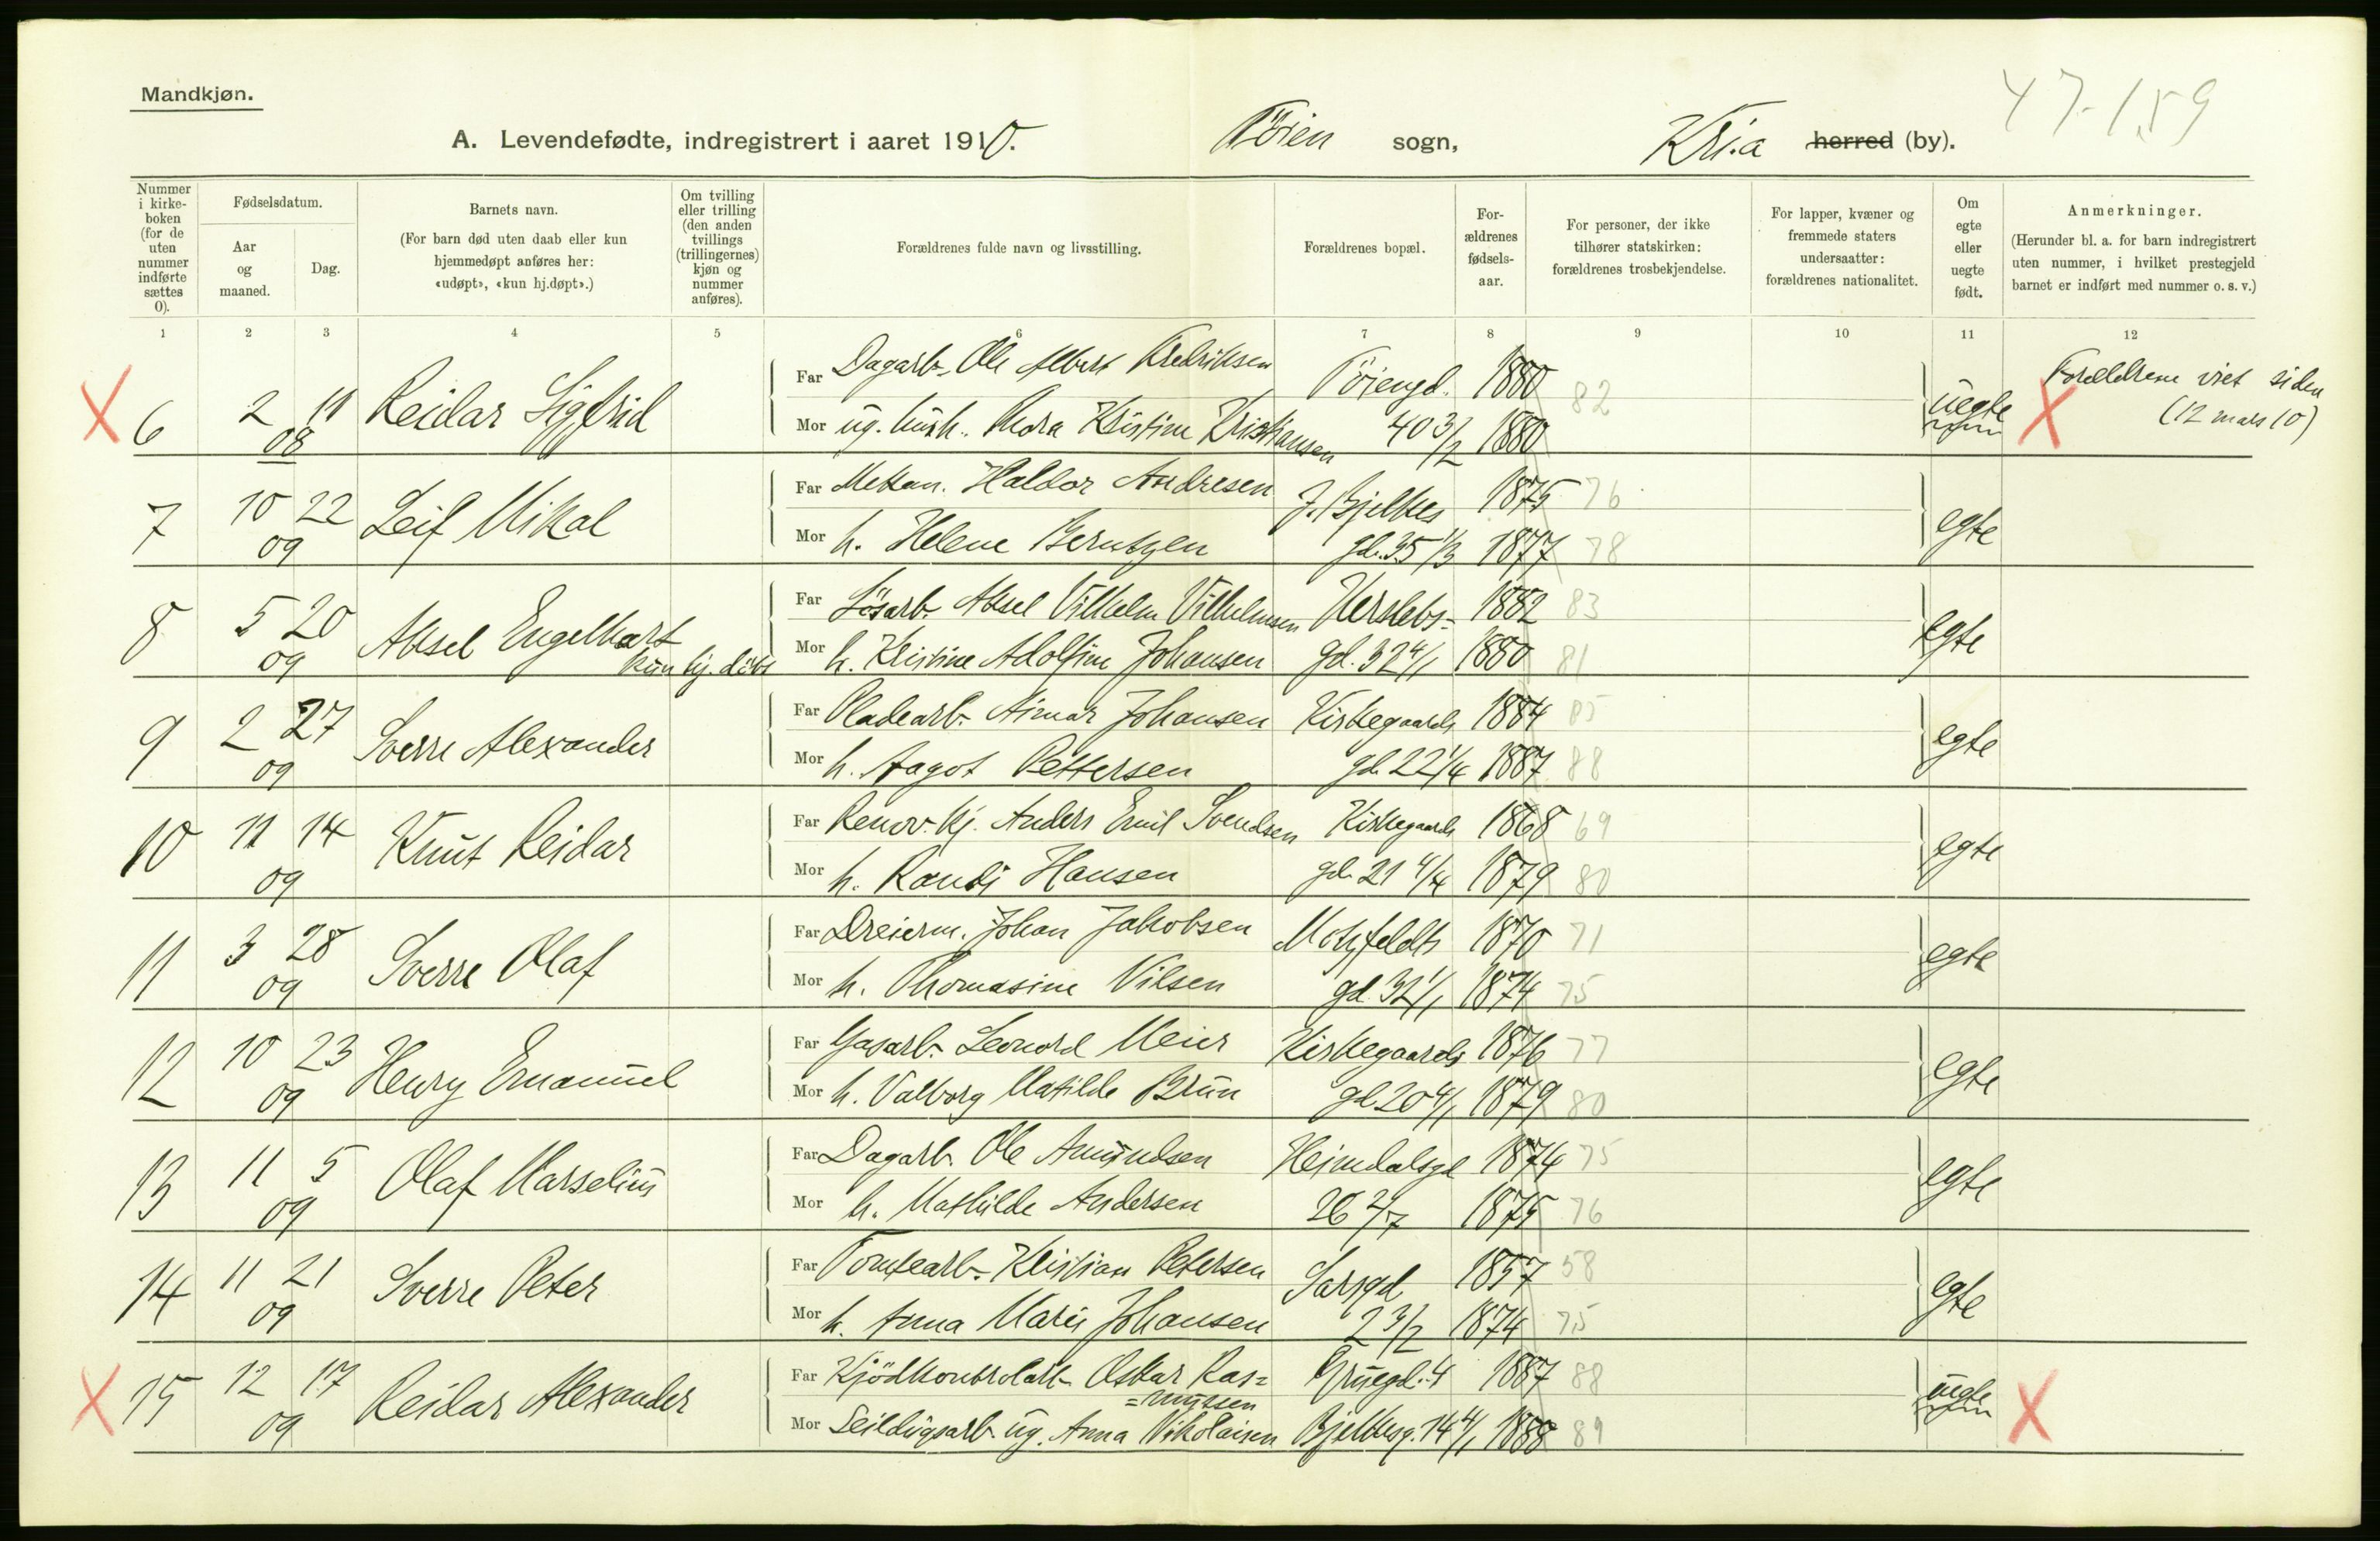 47-159
Mandkjøn.
A. Levendefødte, indregistrert i aaret 1910. Töien sogn, Kri.a herred (by).
Nummer i kirke-boken (for de uten nummer indførte sættes 0).
Fødselsdatum.
Aar og maaned.
Dag.
Barnets navn.
(For barn død uten daab eller kun hjemmedøpt anføres her: «udøpt», «kun hj.døpt».)
Om tvilling eller trilling (den anden tvillings (trillingernes) kjøn og nummer anføres).
Forældrenes fulde navn og livsstilling.
Forældrenes bopæl.
For-ældrenes fødsels-aar.
For personer, der ikke tilhører statskirken: forældrenes trosbekjendelse.
For lapper, kvæner og fremmede staters undersaatter: forældrenes nationalitet.
Om egte eller uegte født.
Anmerkninger.
(Herunder bl. a. for barn indregistrert uten nummer, i hvilket prestegjeld barnet er indført med nummer o. s. v.)
1 2 3 4 5 6 7 8 9 10 11 12
X 6 2 11 Reidar Sigfrid Far Dagarb. Ole Albert Fredriksen Töiengd. 1880 82 uegte X Forældrene viet siden
08 Mor ug. hush. Thora Kristine Kristiansen 40 3/2 1880 (12 mars 10)
7 10 22 Leif Mikal Far Mekan. Haldor Andresen J. Bjelkes 1875 76 egte
09 Mor h. Helene Berntzen gd. 35 1/3 1877 78
8 5 20 Aksel Engelhart Far Lösarb. Aksel Vilhelm Vilhelmsen Herslebs- 1882 83 egte
09 kun hj. döbt Mor h. Kristine Adolfine Johansen gd. 32 4/1 1880 81
9 2 27 Sverre Alexander Far Pladearb. Aimar Johansen Kirkegaards 1884 85 egte
09 Mor h. Aagot Pettersen gd. 22 1/4 1887 88
10 11 14 Knut Reidar Far Renov. kj. Anders Emil Svendsen Kirkegaards 1868 69 egte
09 Mor h. Randi Hansen gd. 21 4/4 1879 80
11 3 28 Sverre Olaf Far Dreierm. Johan Jakobsen Motzfeldts 1870 71 egte
09 Mor h. Thomasine Nilsen gd. 32 1/1 1874 75
12 10 23 Henry Emanuel Far Gasarb. Leonard Meier Kirkegaards 1876 77 egte
09 Mor h. Valborg Matilde Brun gd 20 4/1 1879 80
13 11 5 Olaf Marselius Far Dagarb. Ole Amundsen Heimdalsgd 1874 75 egte
09 Mor h. Mathilde Andersen 26 2/7 1875 76
14 11 21 Sverre Peter Far Tomtearb. Kristian Petersen Sarsgd 1857 58 egte
09 Mor h. Anna Marie Johansen 2 3/2 1874 75
X 15 12 17 Reidar Alexander Far Kjödkontrolarb. Oskar Ras= Gruegd. 4 1887 88 uegte X
=mussen
09 Mor Seildugsarb. ug. Anna Nikolaisen Bjelkesg. 14 4/1 1888 89